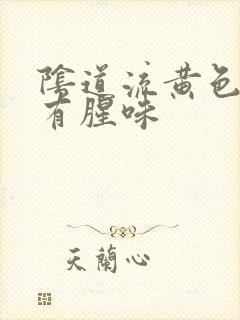 陰道流黃色
有腥味
天蘭心